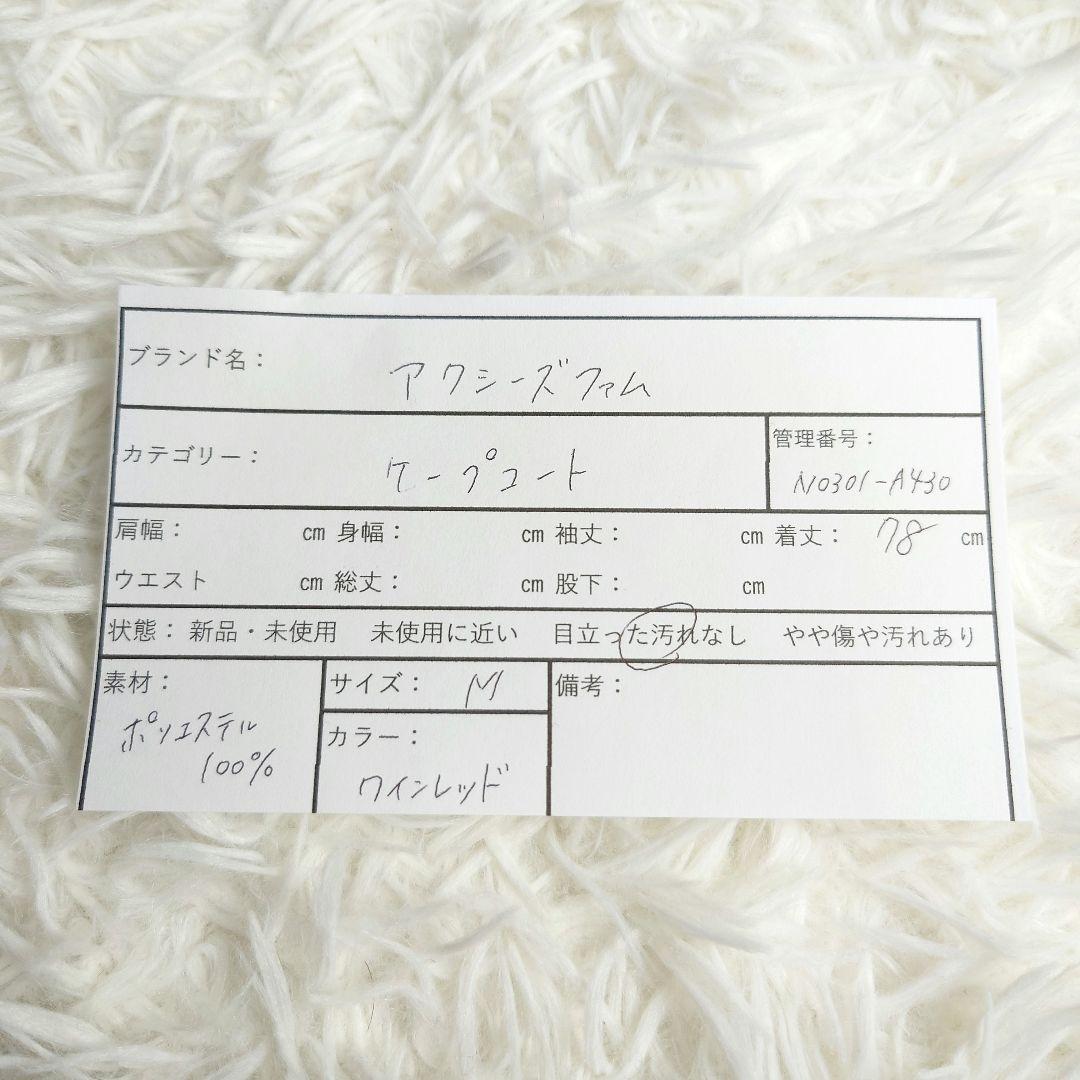 ブランド名： アクシーズファム
カテゴリー： ケープコート 管理番号：
N0301-A430
肩幅： cm 身幅： cm 袖丈： cm 着丈： 78 cm
ウエスト cm 総丈： cm 股下： cm
状態： 新品・未使用 未使用に近い 目立った汚れなし やや傷や汚れあり
素材： サイズ： M 備考：
ポリエステル
100%
カラー：
ワインレッド